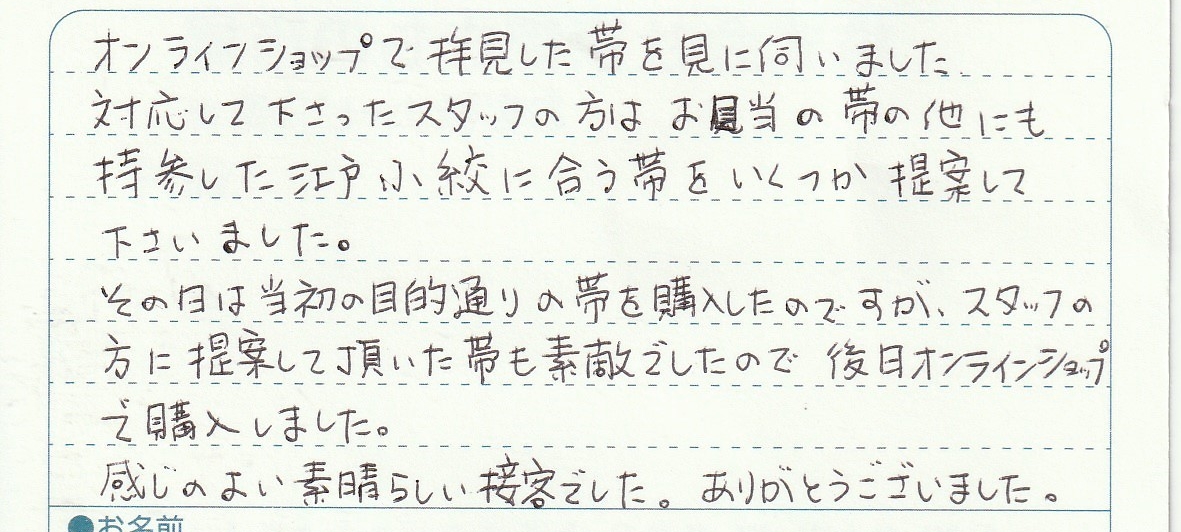 オンラインショップで拝見した帯を見に伺いました
対応して下さったスタッフの方はお目当の帯の他にも
持参した江戸小紋に合う帯をいくつか提案して
下さいました。
その日は当初の目的通りの帯を購入したのですが、スタッフの
方に提案して頂いた帯も素敵でしたので後日オンラインショップ
で購入しました。
感じのよい素晴らしい接客でした。ありがとうございました。
●お名前